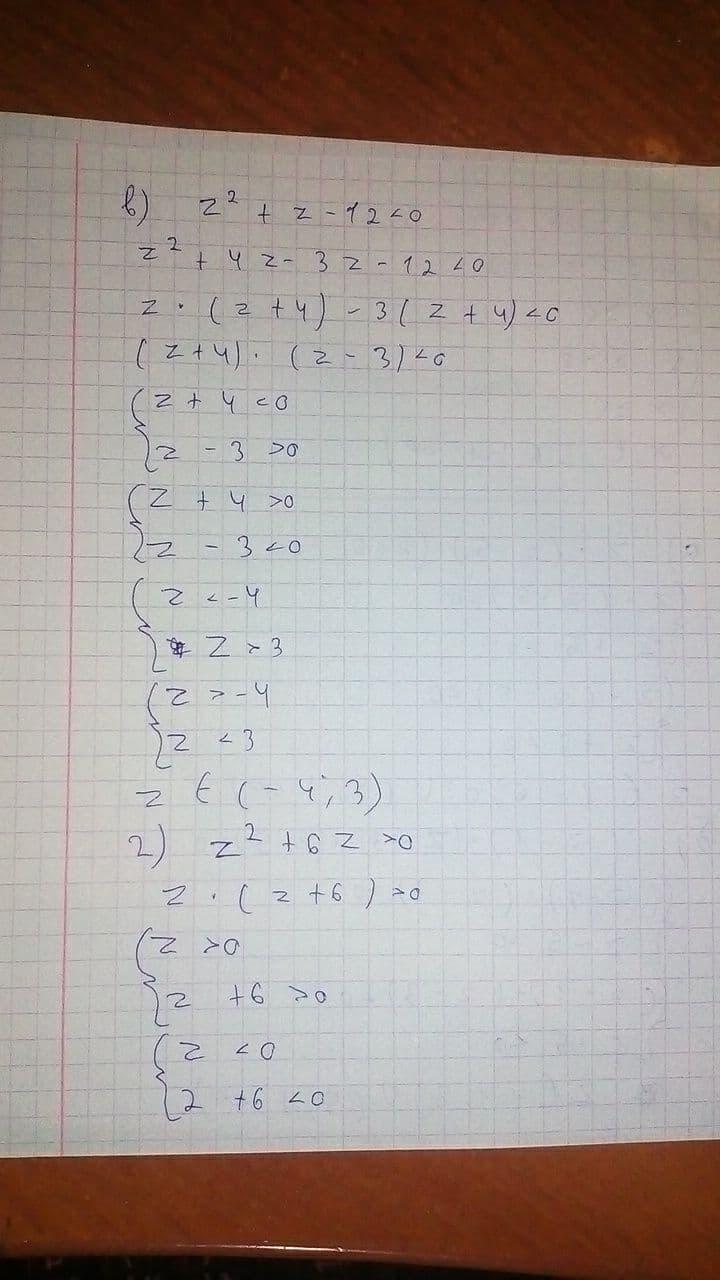 в) z² + z - 12 < 0
z² + 4z - 3z - 12 < 0
z · (z + 4) - 3(z + 4) < 0
(z + 4) · (z - 3) < 0
{ z + 4 < 0
z - 3 > 0
{ z + 4 > 0
z - 3 < 0
{ z < -4
z > 3
{ z > -4
z < 3
z ∈ (-4; 3)
г) z² + 6z > 0
z · (z + 6) > 0
{ z > 0
z + 6 > 0
{ z < 0
z + 6 < 0